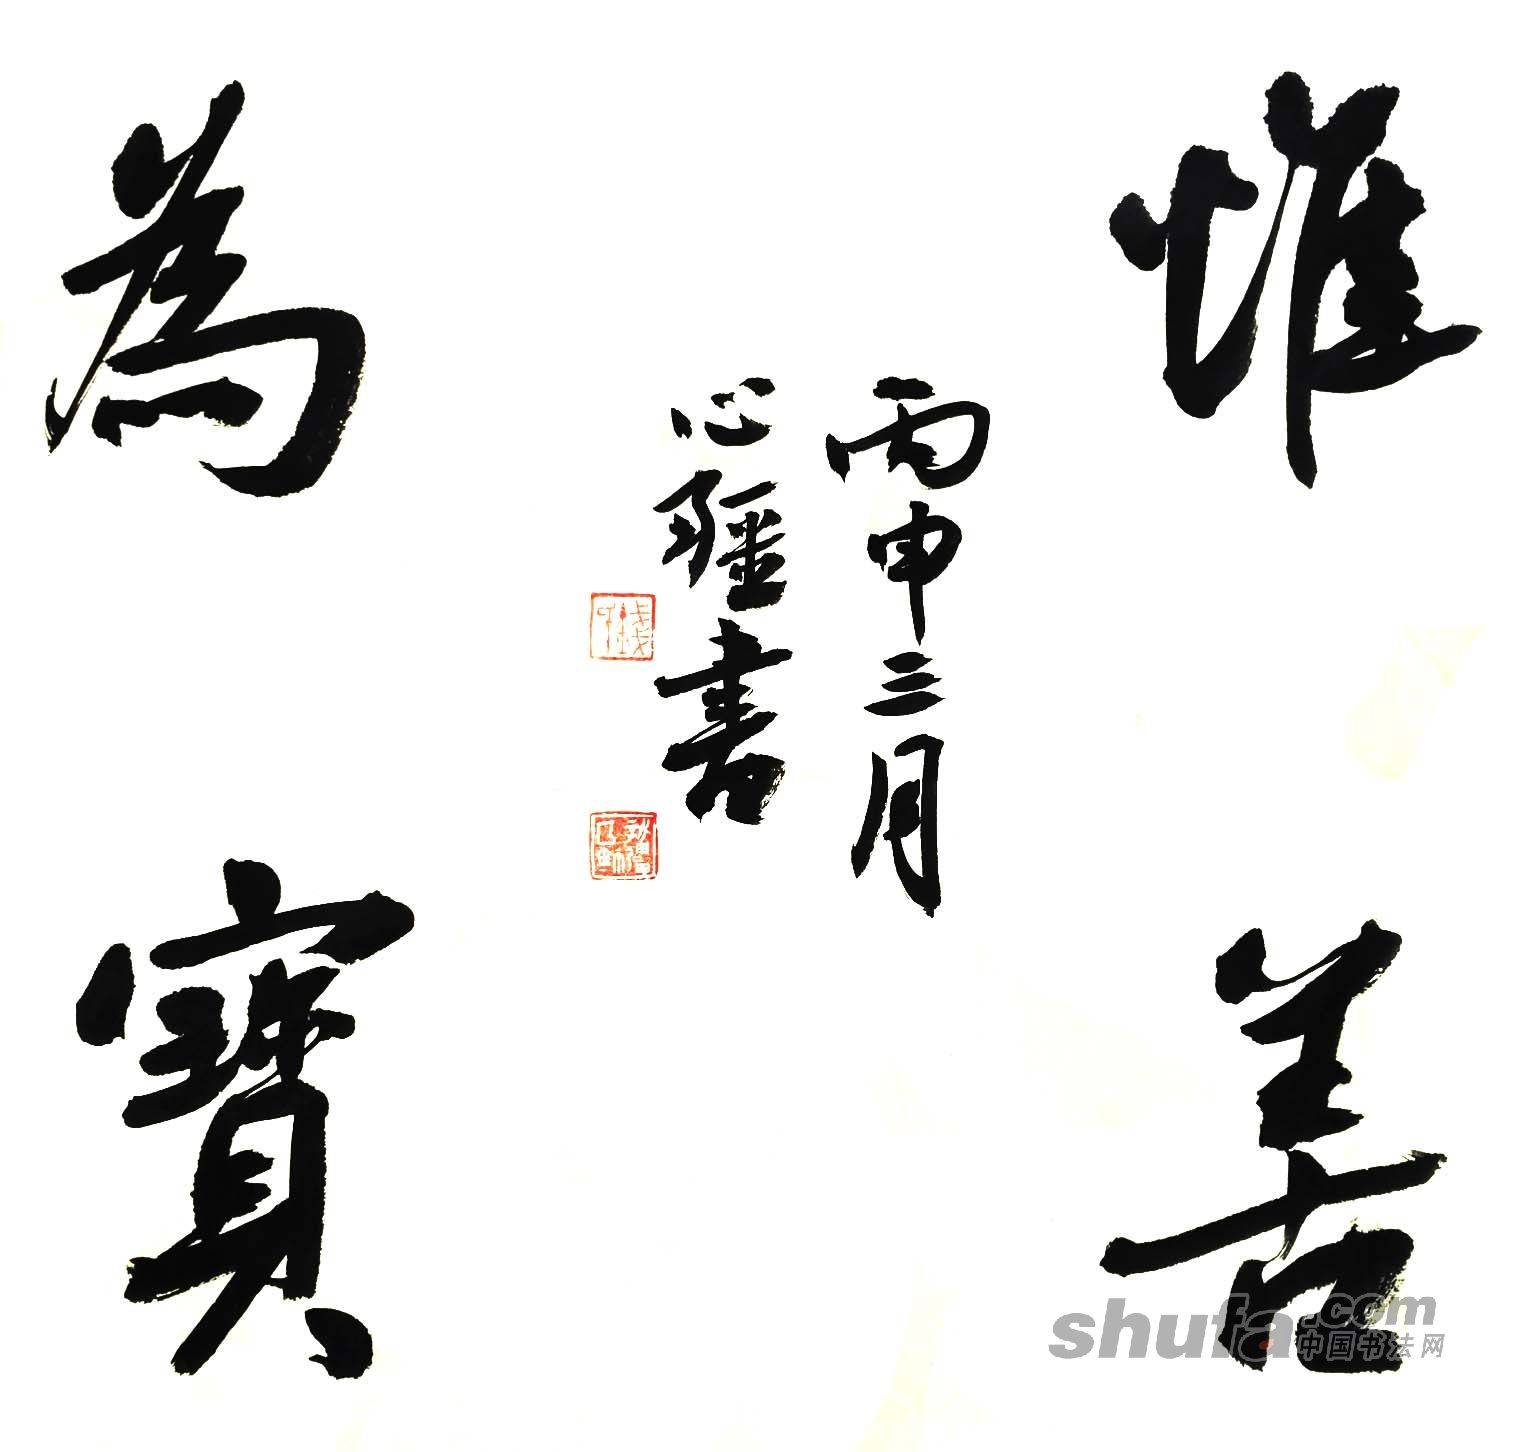 惟善
為寶
丙申三月
心疆書
shufa.com
中国书法网